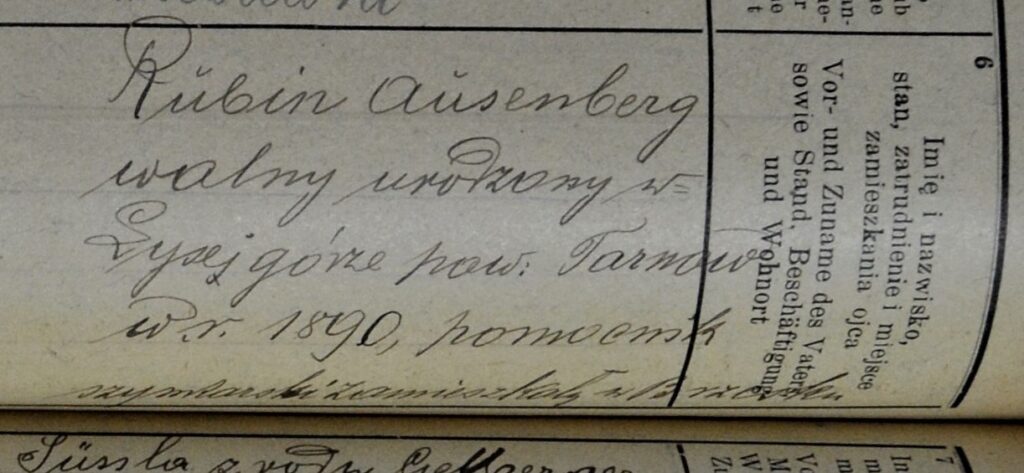 Rubin Ausenberg
walny urodzony w=
Łysej górze pow: Tarnow
w r. 1890, pomocnik
zamieszkały w
6
Imię i nazwisko,
stan, zatrudnienie i miejsce
zamieszkania ojca
Vor- und Zuname des Vaters
sowie Stand, Beschäftigung
und Wohnort
Süssla z rodz.
7